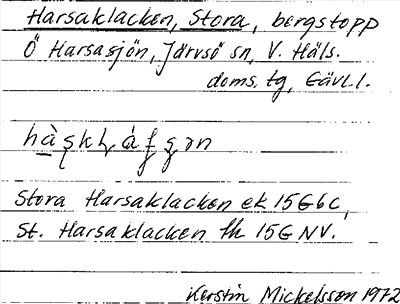 Harsaklacken, Stora, bergstopp
Ö Harsasjön, Järvsö sn, V. Häls.
doms. tg, Gävl. l.
Stora Harsaklacken ek 15G6c,
St. Harsaklacken tk 15G NV.
Kerstin Mickelsson 1972